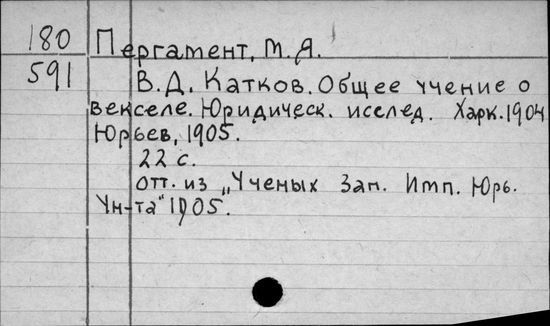 180 Пергамент, М. Я.
591 В. Д. Катков. Общее учение о
векселе. Юридическ. исслед. Харк. 1904
Юрьев, 1905.
22 с.
отт. из „Ученых Зап. Имп. Юрь.
Ун-та" 1905.